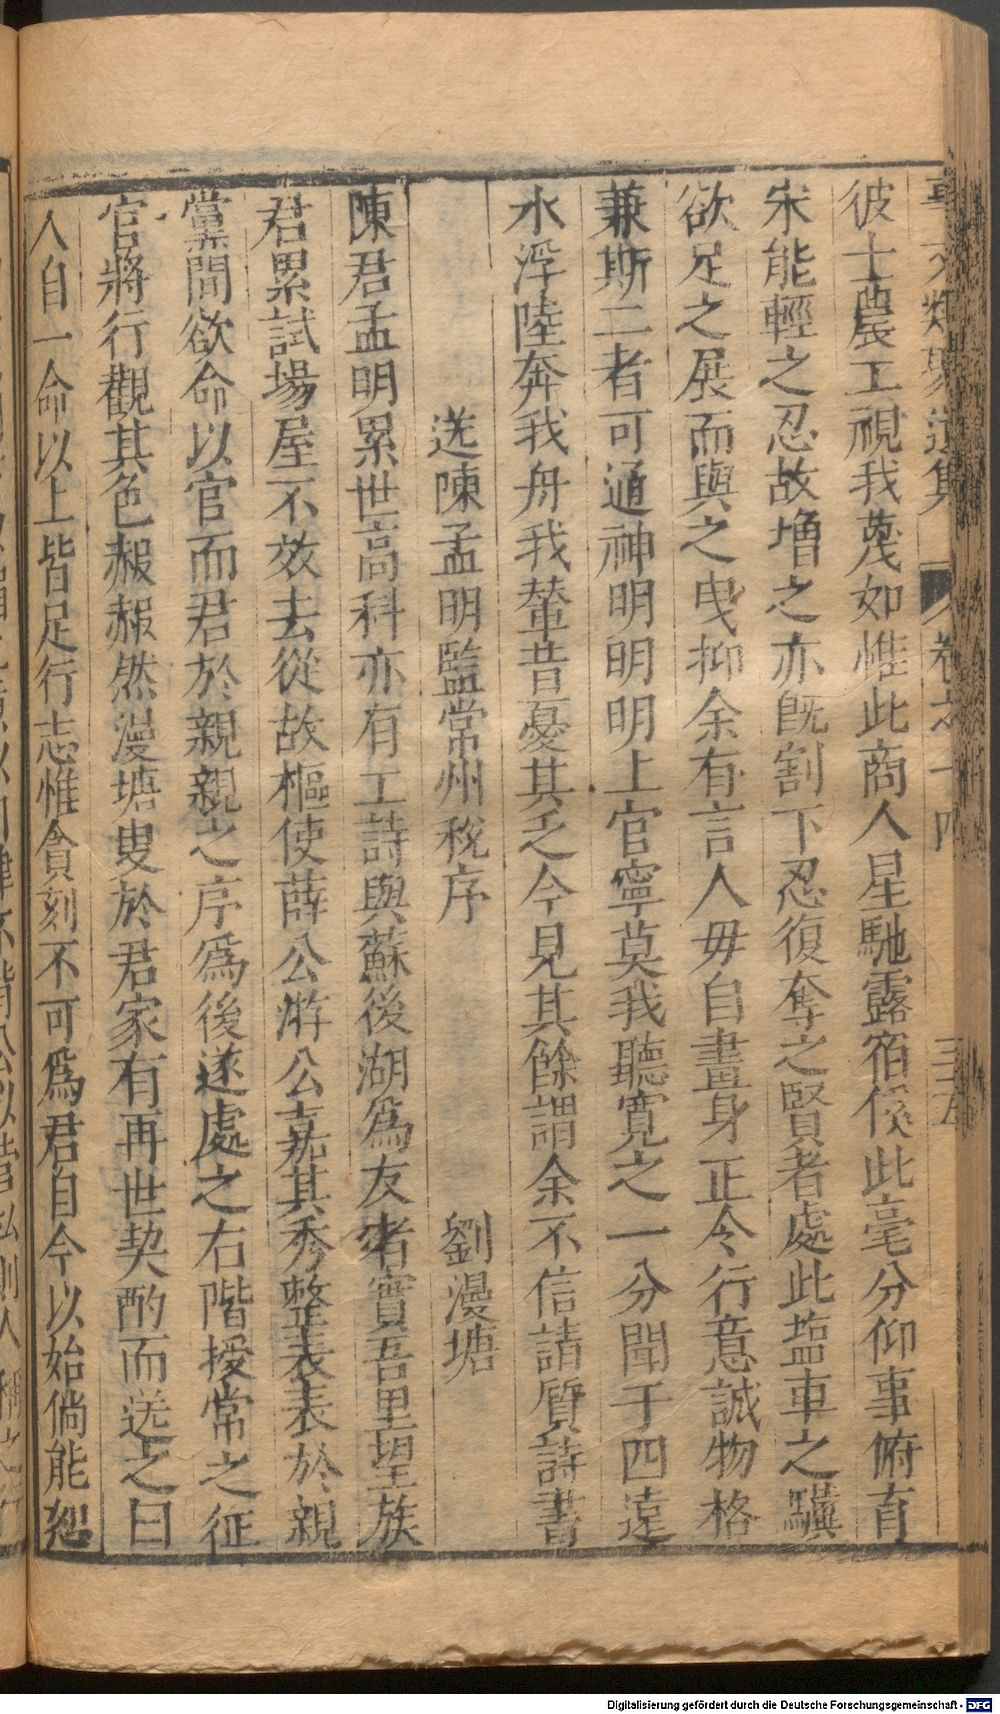 事文類聚遺集 卷之十四 三五
彼士農工視我蔑如惟此商人星馳露宿傒此毫分仰事俯育
宋能輕之忍故增之亦既割下忍復奪之賢者處此塩車之驥
欲足之展而與之曳抑余有言人毋自畫身正令行意誠物格
兼斯二者可通神明明明上官寧莫我聽寬之一分聞于四遠
水浮陸奔我舟我輦昔憂其乏今見其餘謂余不信請質詩書
送陳孟明監常州稅序 劉漫塘
陳君孟明累世高科亦有工詩與蘇後湖爲友者實吾里望族
君累試場屋不效去從故樞使薛公游公嘉其秀整表表於親
黨間欲命以官而君於親親之序爲後遂處之右階授常之征
官將行觀其色赧赧然漫塘叟於君家有再世契酌而送之曰
人自一命以上皆足行志惟貪刻不可爲君自今以始倘能恕
Digitalisierung gefördert durch die Deutsche Forschungsgemeinschaft - DFG